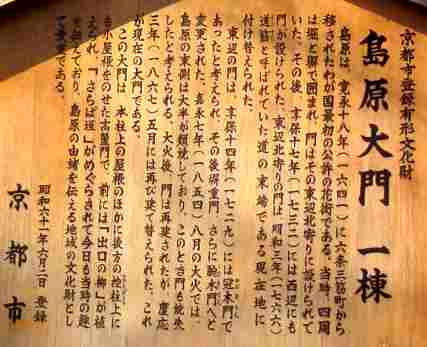 京都市登録有形文化財
島原大門 一棟
島原は、寛永十八年(一六四一)に六条三筋町から
移されたわが国最初の公許の花街である。当時、四周
は堀と塀で囲まれ、門はその東辺北寄りに設けられて
いた。その後、享保十七年(一七三二)には西辺にも
門が設けられた。東辺北寄りの門は、明和三年(一七六六)
道筋と呼ばれていた道の東端である現在地に
付け替えられた。
東辺の門は、享保十四年(一七二九)には冠木門で
あったと考えられ、その後塀重門、さらに腕木門へと
変更された。嘉永七年(一八五四)八月の大火では、
島原の東側は大半が類焼しており、このとき門も焼失
したと考えられる。大火後、門は再建されたが、慶応
三年(一八六七)五月には再び建て替えられた。これ
が現在の大門である。
この大門は、本柱上の屋根のほかに後方の控柱上に
も小屋根をのせた高麗門で、前には「出口の柳」が植
えられ、「さらば垣」がめぐらされて今日も当時の趣
を伝えており、島原の由緒を伝える地域の文化財とし
て貴重である。
昭和六十一年六月二日 登録
京都市